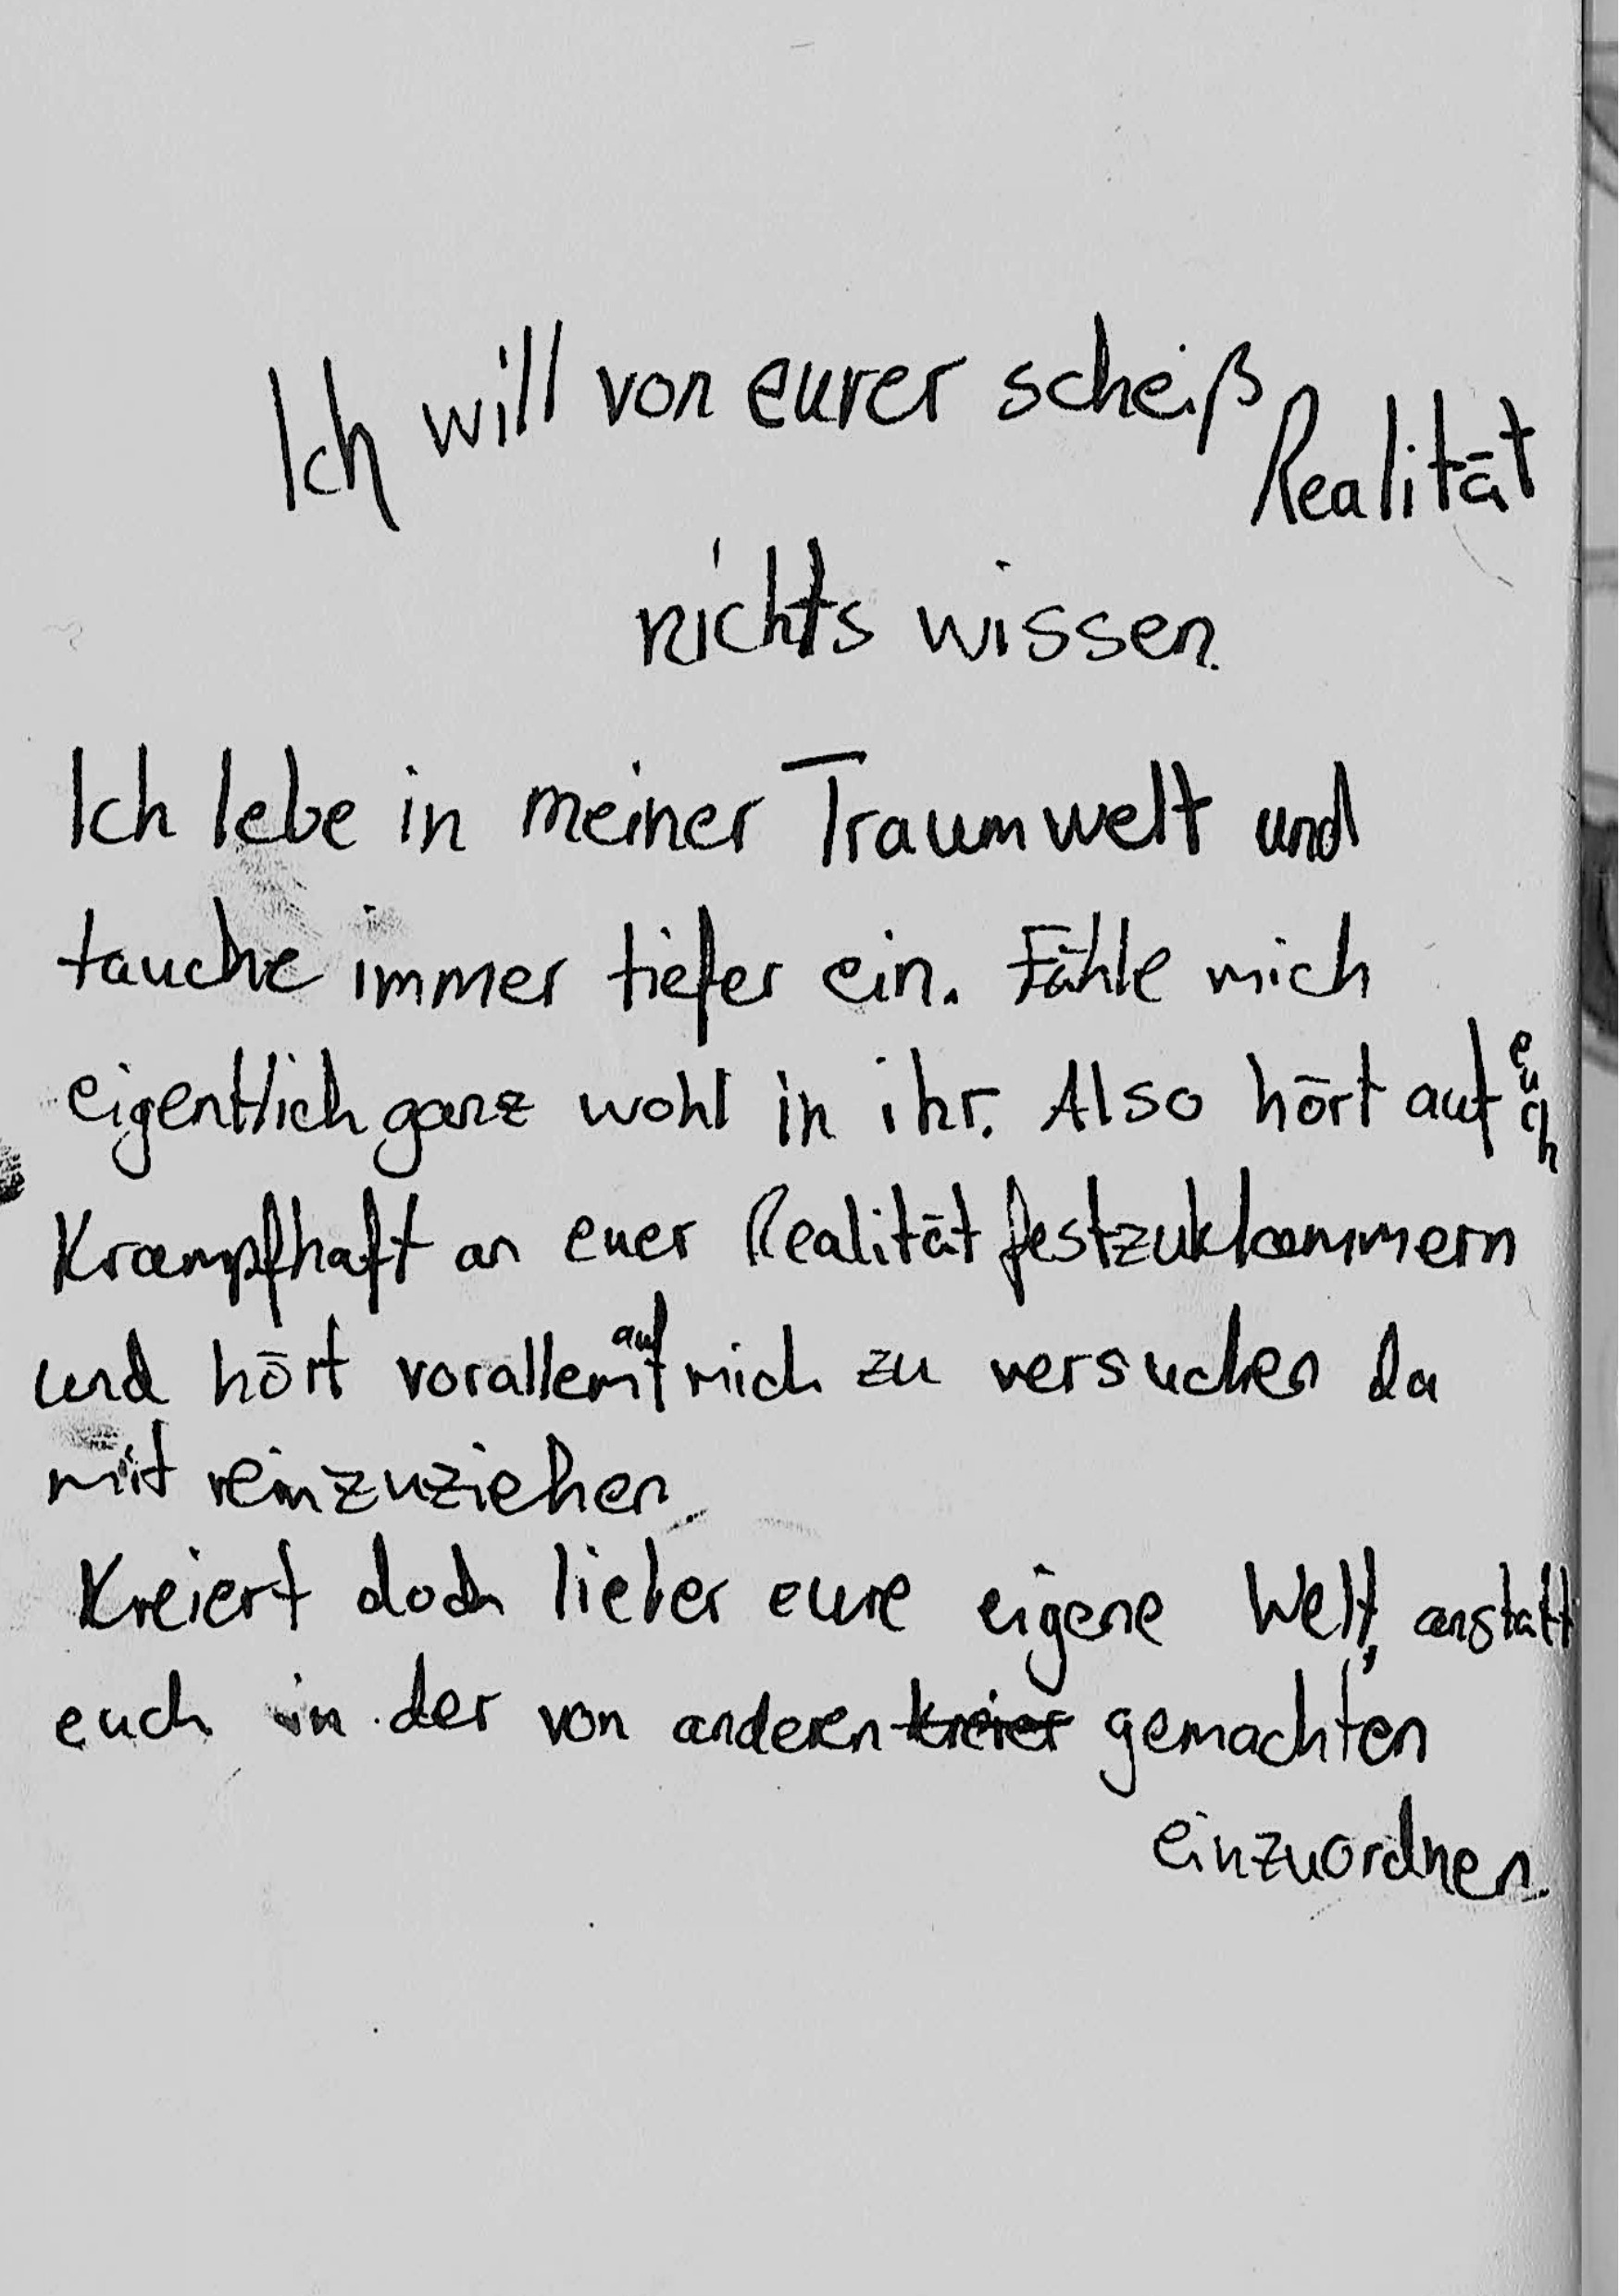 Ich will von eurer scheiß Realität
nichts wissen.
Ich lebe in meiner Traumwelt und
tauche immer tiefer ein. Fühle mich
eigentlich ganz wohl in ihr. Also hört auf euch
Krampfhaft an euer Realität festzuklammern
und hört vorallem auf mich zu versuchen da
mit reinzuziehen.
Kreiert doch lieber eure eigene Welt, anstatt
euch in der von anderen kreier gemachten
einzuordnen.